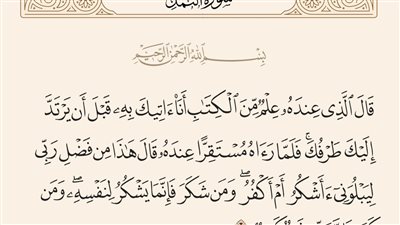 سورة النمل
بِسْمِ اللَّهِ الرَّحْمَٰنِ الرَّحِيمِ
قَالَ الَّذِى عِندَهُۥ عِلْمٌ مِّنَ الْكِتَٰبِ أَنَا۠ ءَاتِيكَ بِهِۦ قَبْلَ أَن يَرْتَدَّ
إِلَيْكَ طَرْفُكَ ۚ فَلَمَّا رَءَاهُ مُسْتَقِرًّا عِندَهُۥ قَالَ هَٰذَا مِن فَضْلِ رَبِّى
لِيَبْلُوَنِىٓ ءَأَشْكُرُ أَمْ أَكْفُرُ ۖ وَمَن شَكَرَ فَإِنَّمَا يَشْكُرُ لِنَفْسِهِۦ ۖ وَمَن